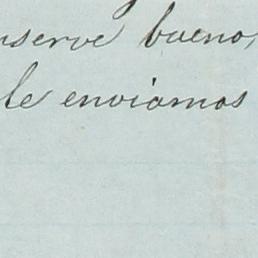 nserve bueno,
le enviamos